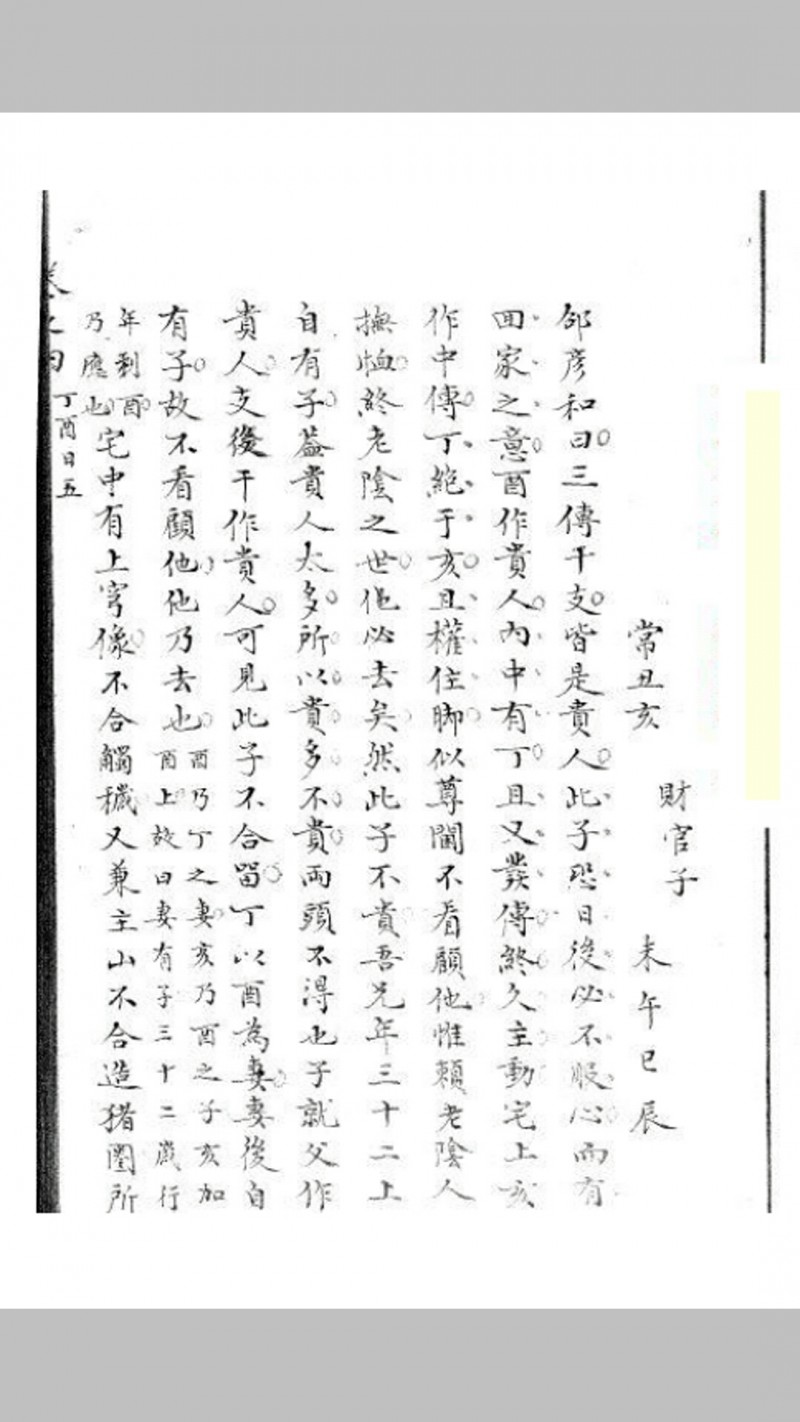 財官子
常丑亥　未午巳辰
邵彦和曰三傳干支皆是貴人此子恐日後必不服心而有
回家之意酉作貴人內中有丁且又發傳終久主動宅上亥
作中傳丁絶于亥且權住脚似尊閫不看顧他惟賴老陰人
撫恤終老陰之世他必去矣然此子不貴吾兄年三十二上
自有子葢貴人太多所以貴多不貴兩頭不得也子就父作
貴人支後干作貴人可見此子不合留丁以酉為妻妻後自
有子故不看顧他他乃去也
酉乃丁之妻亥乃酉之子亥加
酉上故曰妻有子三十二歲行
年到酉
乃應也
宅中有上穹像不合觸穢又兼主山不合造猪圈所
卷之四　丁酉日五